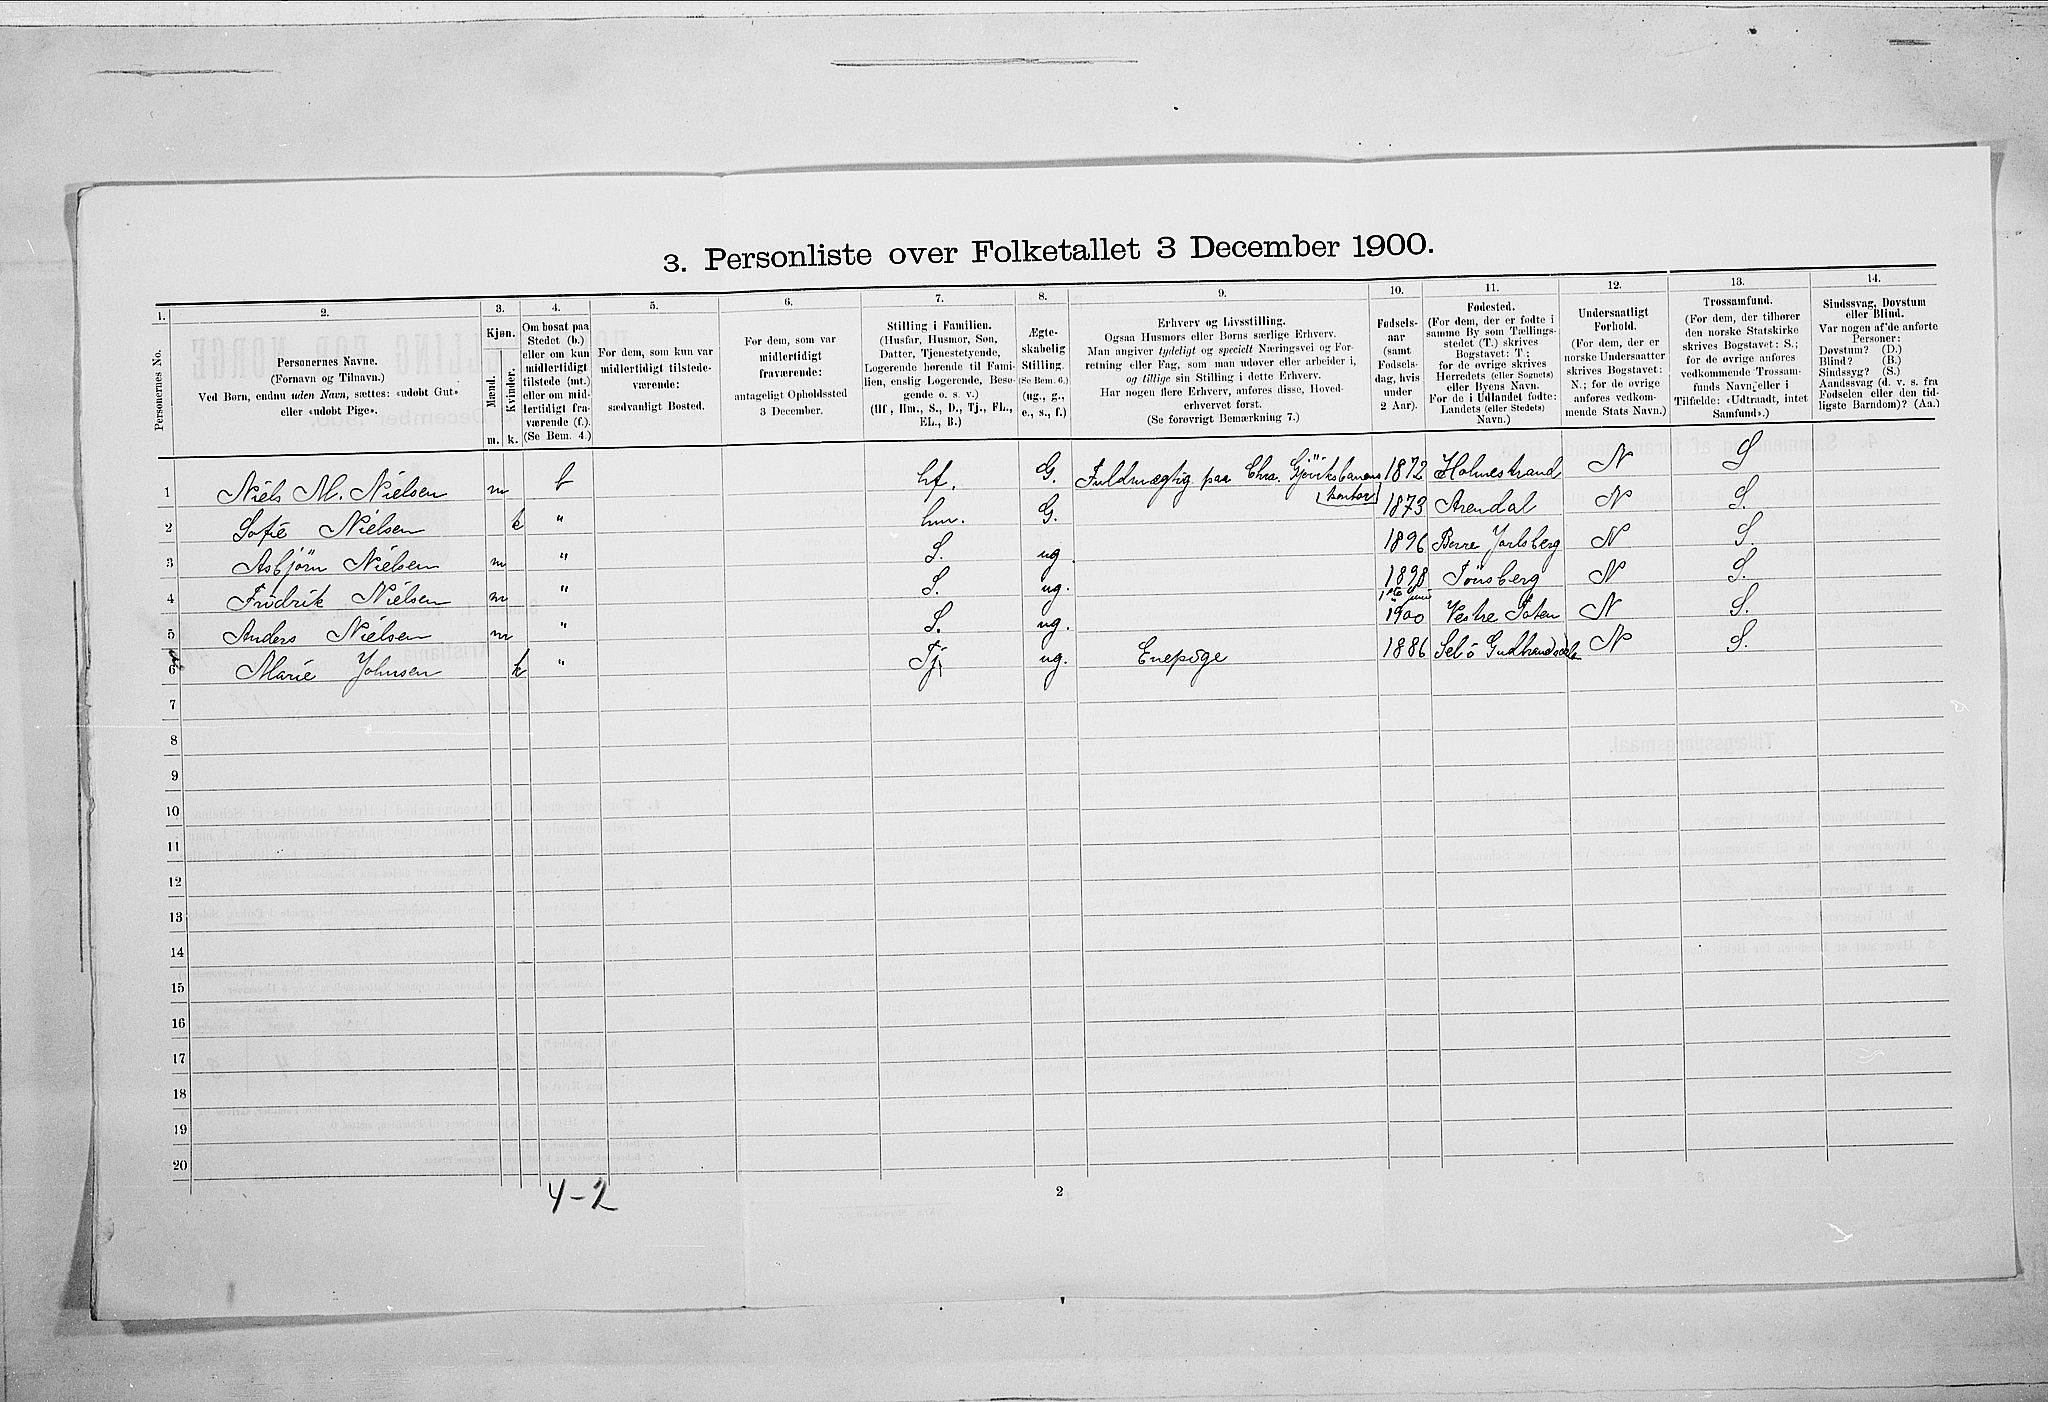 3. Personliste over Folketallet 3 December 1900.
1. 2. 3. 4. 5. 6. 7. 8. 9. 10. 11. 12. 13. 14.
Personernes No.
Personernes Navne.
(Fornavn og Tilnavn.)
Ved Børn, endnu uden Navn, sættes: «udøbt Gut»
eller «udøbt Pige».
Kjøn.
Mænd.
Kvinder.
m. k.
Om bosat paa
Stedet (b.)
eller om kun
midlertidigt
tilstede (mt.)
eller om mid-
lertidigt fra-
værende (f.).
(Se Bem. 4.)
For dem, som kun var
midlertidigt tilstede-
værende:
sædvanligt Bosted.
For dem, som var
midlertidigt
fraværende:
antageligt Opholdssted
3 December.
Stilling i Familien.
(Husfar, Husmor, Søn,
Datter, Tjenestetyende,
Logerende hørende til Fami-
lien, enslig Logerende, Besø-
gende o. s. v.)
(Hf., Hm., S., D., Tj., FL.,
EL., B.)
Ægte-
skabelig
Stilling.
(Se Bem. 6.)
(ug., g.,
e., s., f.)
Erhverv og Livsstilling.
Ogsaa Husmors eller Børns særlige Erhverv.
Man angiver tydeligt og specielt Næringsvei og For-
retning eller Fag, som man udøver eller arbeider i,
og tillige sin Stilling i dette Erhverv.
Har nogen flere Erhverv, anføres disse, Hoved-
erhvervet først.
(Se forøvrigt Bemærkning 7.)
Fødsels-
aar
(samt
Fødsels-
dag, hvis
under
2 Aar).
Fødested.
(For dem, der er fødte i
samme By som Tællings-
stedet (T.) skrives
Bogstavet: T.;
for de øvrige skrives
Herredets (eller Sognets)
eller Byens Navn.
For de i Udlandet fødte:
Landets (eller Stedets)
Navn.)
Undersaatligt
Forhold.
(For dem, der er
norske Undersaatter
skrives Bogstavet:
N.; for de øvrige
anføres vedkom-
mende Stats Navn.)
Trossamfund.
(For dem, der tilhører
den norske Statskirke
skrives Bogstavet: S.;
for de øvrige anføres
vedkommende Trossam-
funds Navn, eller i
Tilfælde: «Udtraadt, intet
Samfund».)
Sindssvag, Døvstum
eller Blind.
Var nogen af de anførte
Personer:
Døvstum? (D.)
Blind? (B.)
Sindssyg? (S.)
Aandssvag (d. v. s. fra
Fødselen eller den tid-
ligste Barndom)? (Aa.)
1 Niels M. Nielsen m b hf. G. Fuldmægtig paa Chra. Gjøviksbanens 1872 Holmestrand N S
kontor
2 Sofie Nielsen k " hm. G. 1873 Arendal N S.
3 Asbjørn Nielsen m " S. ug. 1896 Borre Jarlsberg N S.
4 Fridrik Nielsen m " S. ug. 1898 Tönsberg N S.
5 Anders Nielsen m " S. ug. 1900 Vestre Toten N S.
6 Marie Johnsen k " Tj ug. Enepige 1886 Selö Gudbrandsdalen N S.
7
8
9
10
11
12
13
14
15
16
17
18
19
20
4-2
2